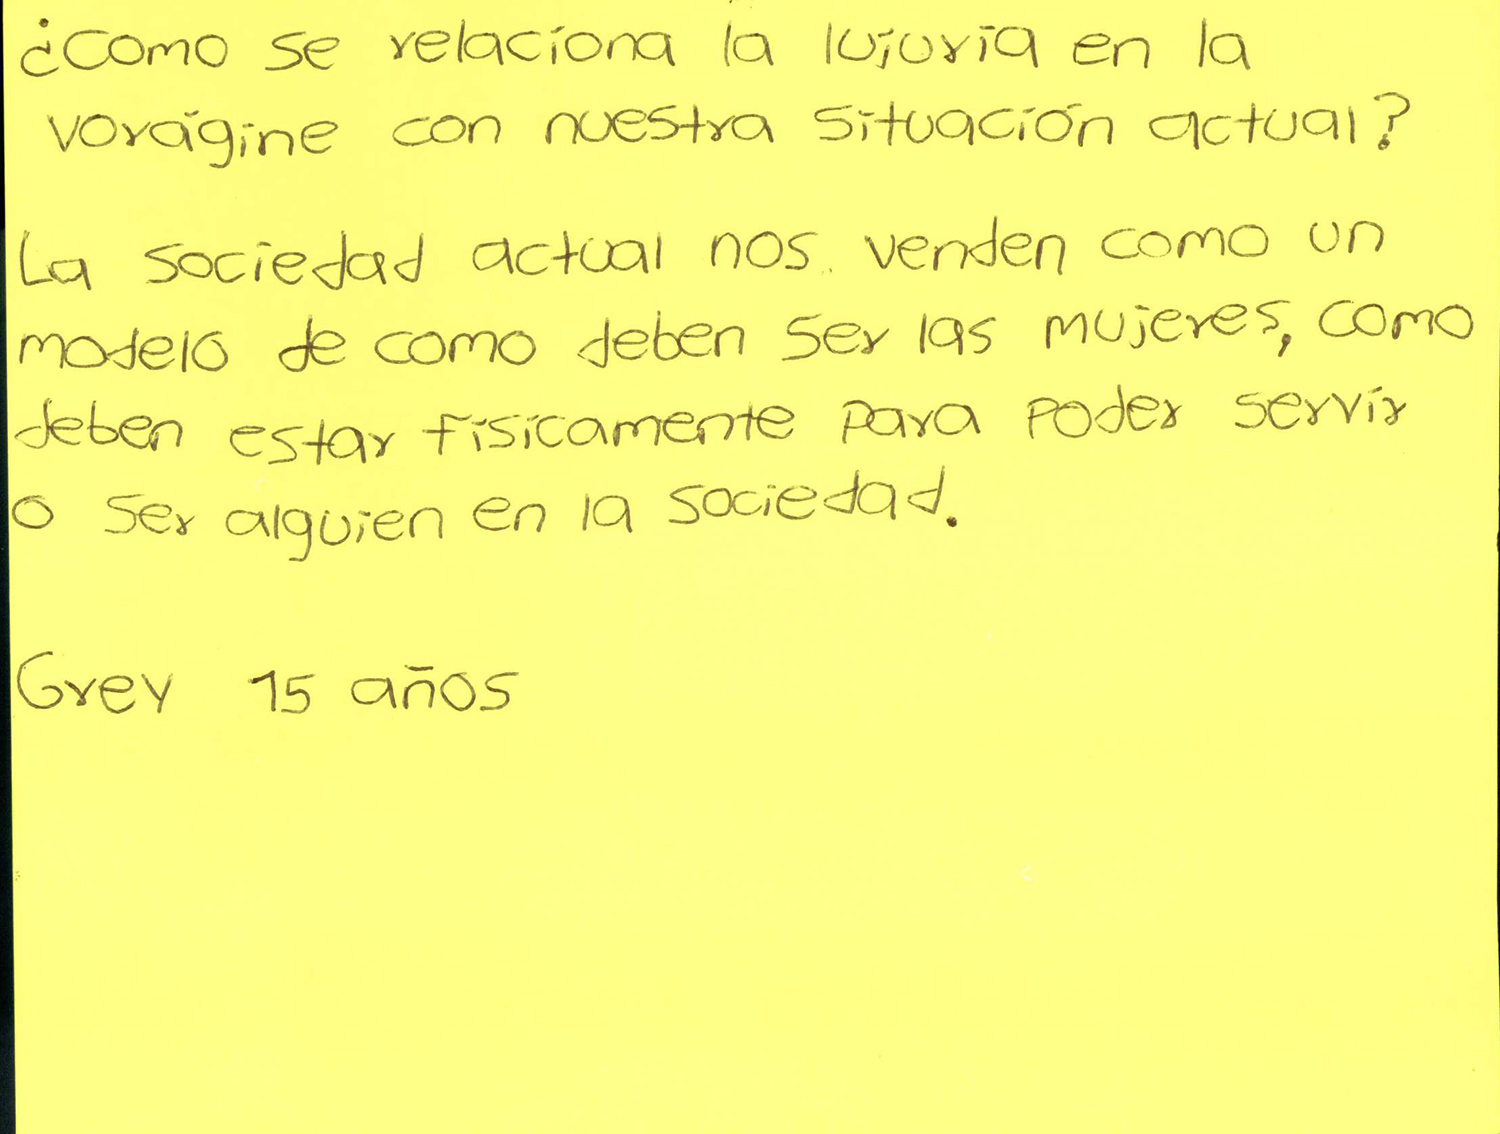 ¿Como se relaciona la lujuria en la
vorágine con nuestra situación actual?
La sociedad actual nos venden como un
modelo de como deben ser las mujeres, como
deben estar físicamente para poder servir
o ser alguien en la sociedad.
Grey 15 años